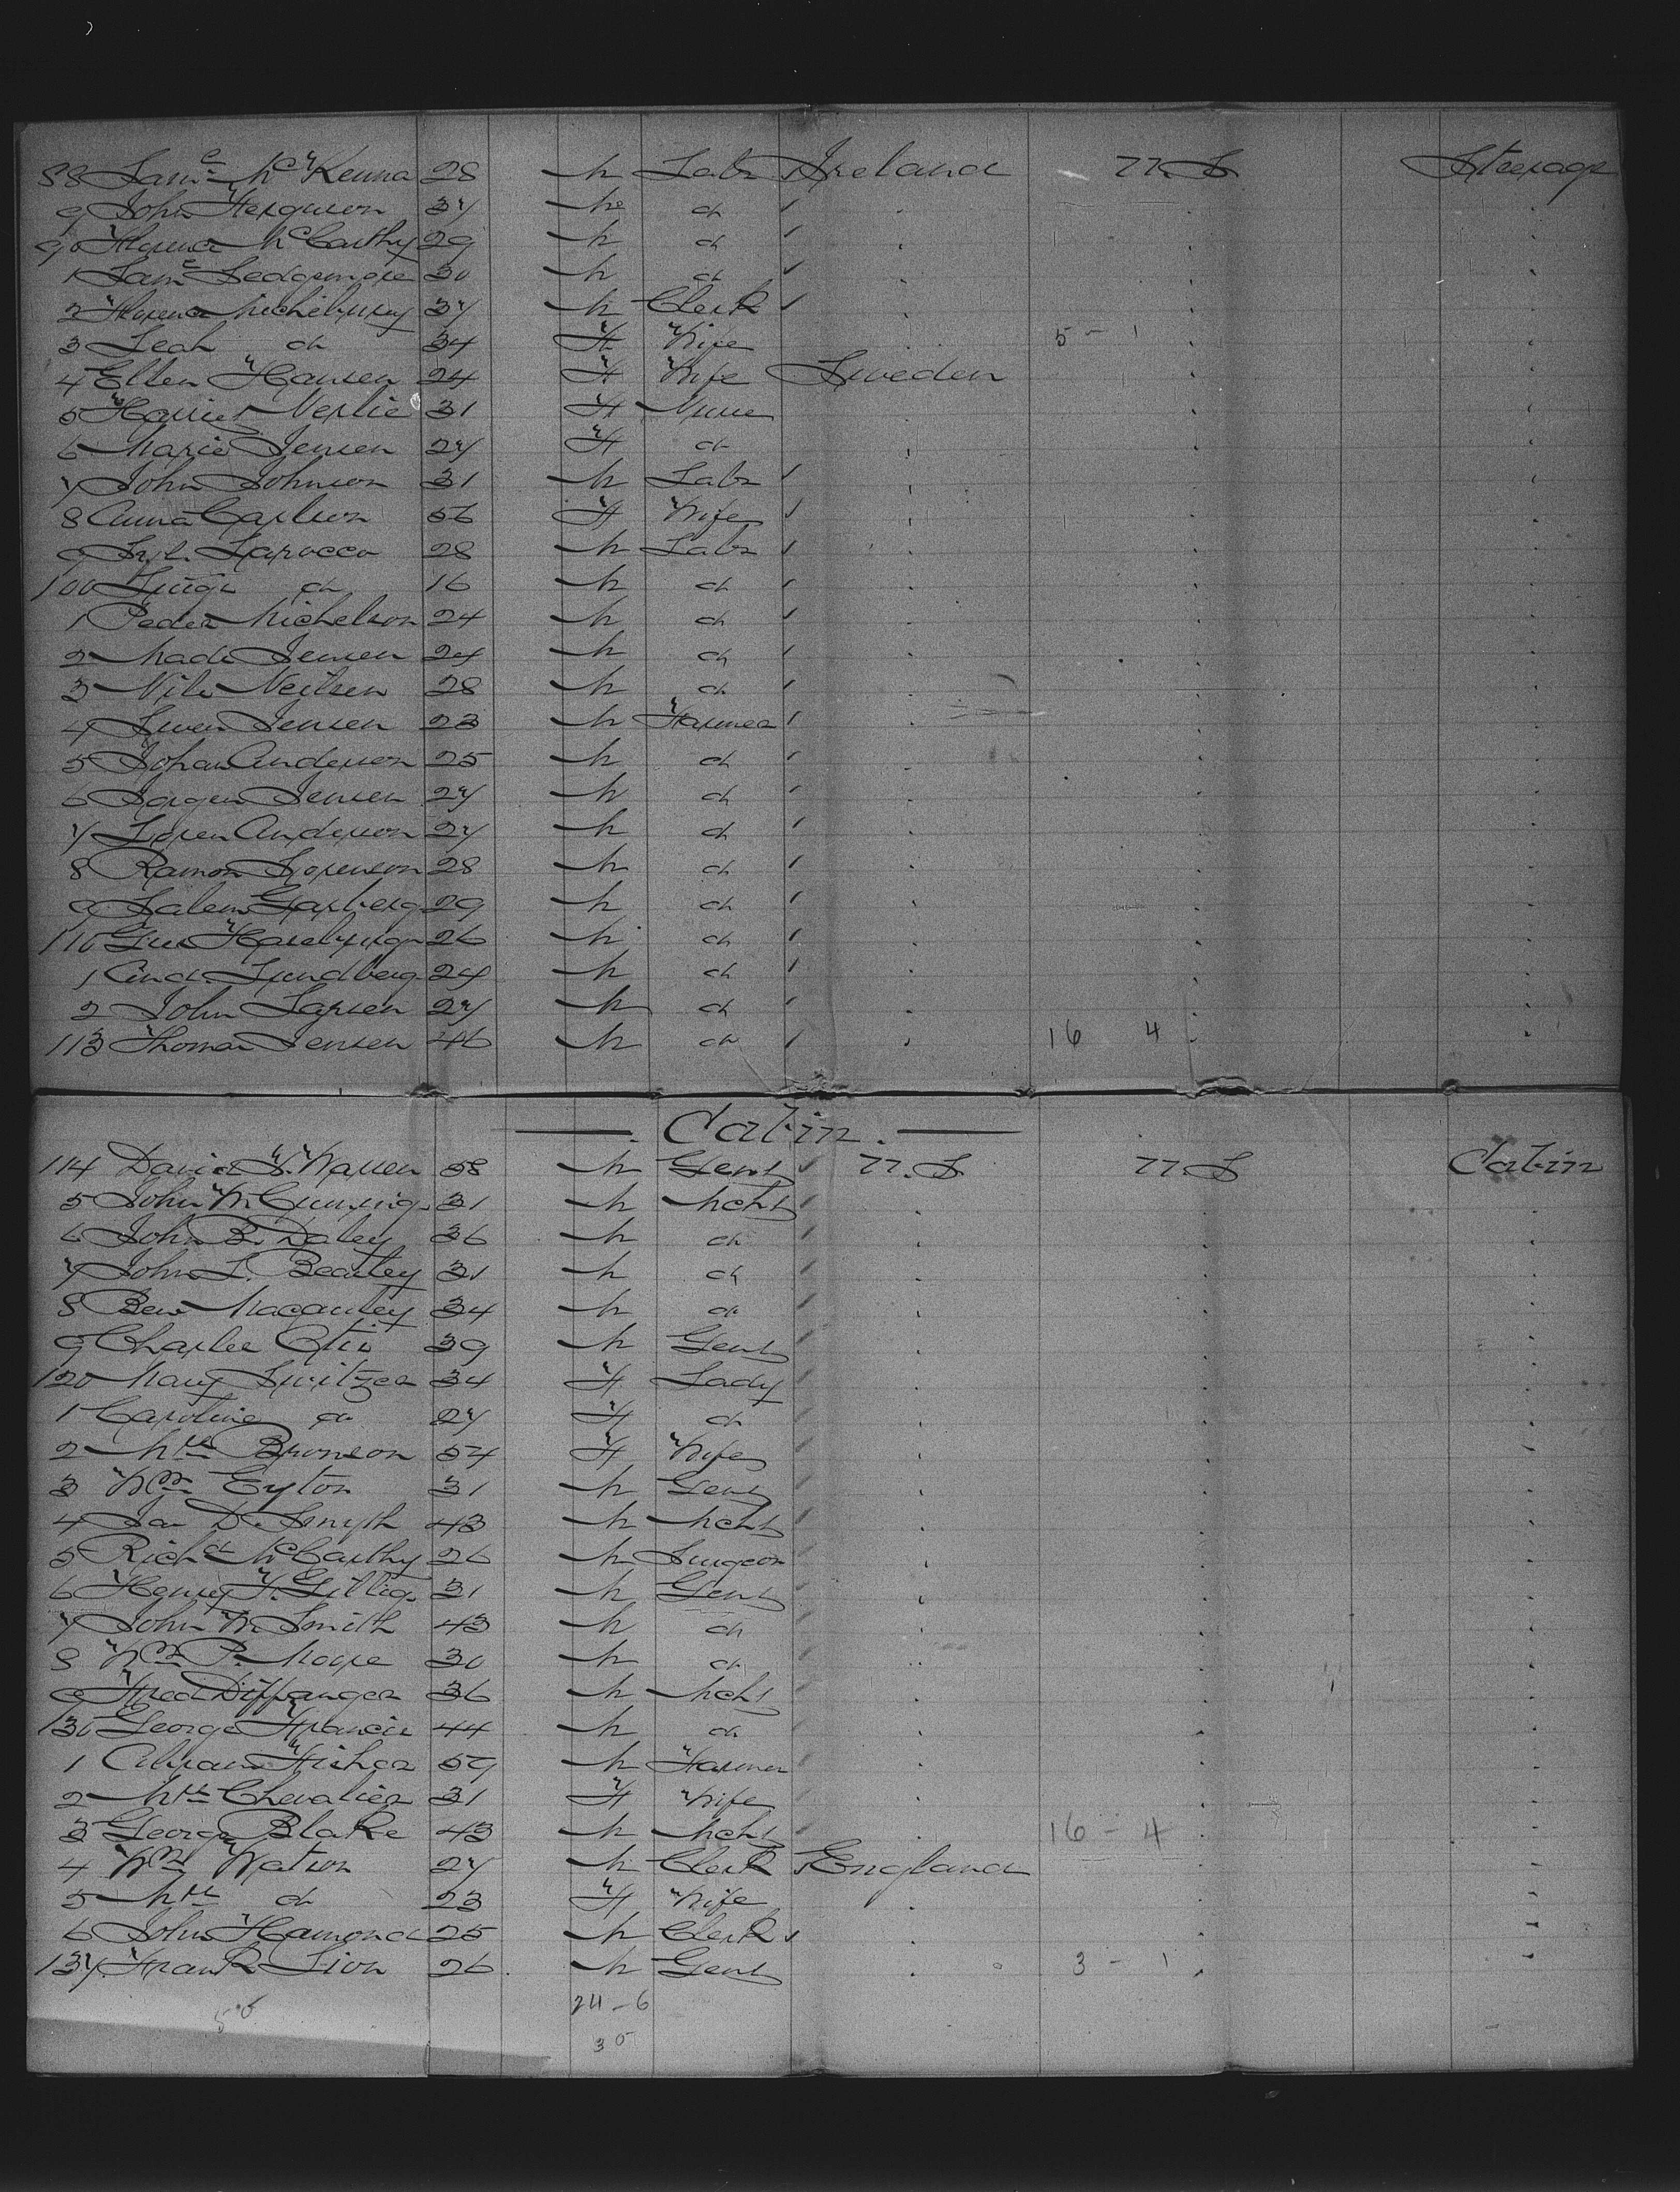 88 Saml McKenna 28 M Labr Ireland U.S Steerage
9 John Ferguson 37 M do
90 Florence McCarthy 29 M do
1 Saml Sedgemore 30 M do
2 Michelburg 37 M Clerk
3 Leah do 34 F Wife 5 - 1
4 Ellen Hansen 24 F Wife Sweden
5 Harriet Nerlie 31 F Nurse
6 Marie Jensen 27 F do
7 John Johnson 31 M Labr
8 Anna Carlson 56 F Wife
9 Larocca 28 M Labr
100 Luigi do 16 M do
1 Peder Michelson 24 M do
2 Mads Jensen 24 M do
3 Nils Neilsen 28 M do
4 Swen Jensen 23 M Farmer
5 Johan Anderson 25 M do
6 Jorgen Jensen 27 M do
7 Soren Anderson 27 M do
8 Ramon Sorenson 28 M do
9 Salem 29 M do
110 Gus 26 M do
1 And. Lundberg 24 M do
2 John Larsen 27 M do
113 Thomas Jensen 46 M do 16 4
Cabin.
114 David S. Warren 58 M Gent U.S U.S Cabin
5 John W. 31 M Mcht
6 John B. Daley 36 M do
7 John L. Beatley 31 M do
8 Ben Macauley 34 M do
9 Charles Otis 39 M Gent
120 Mary Switzer 34 F Lady
1 Caroline do 27 F do
2 Mrs Bronson 54 F Wife
3 Wm Eyton 31 M Gent
4 Jas D. Smyth 43 M Mcht
5 Richd McCarthy 26 M Surgeon
6 Henry F. Gillig 31 M Gent
7 John W. Smith 43 M do
8 Wm P. Moore 30 M do
9 Fred Diffanger 36 M Mcht
130 George Francis 44 M do
1 Abram Fisher 59 M Farmer
2 Mrs Chevalier 31 F Wife
3 George Blake 43 M Mcht 16 - 4
4 Wm Watson 27 M Clerk England
5 Mrs do 23 F Wife
6 John Hamond 25 M Clerk
137 Frank Lion 26 M Gent 3 - 1
24 - 6
30